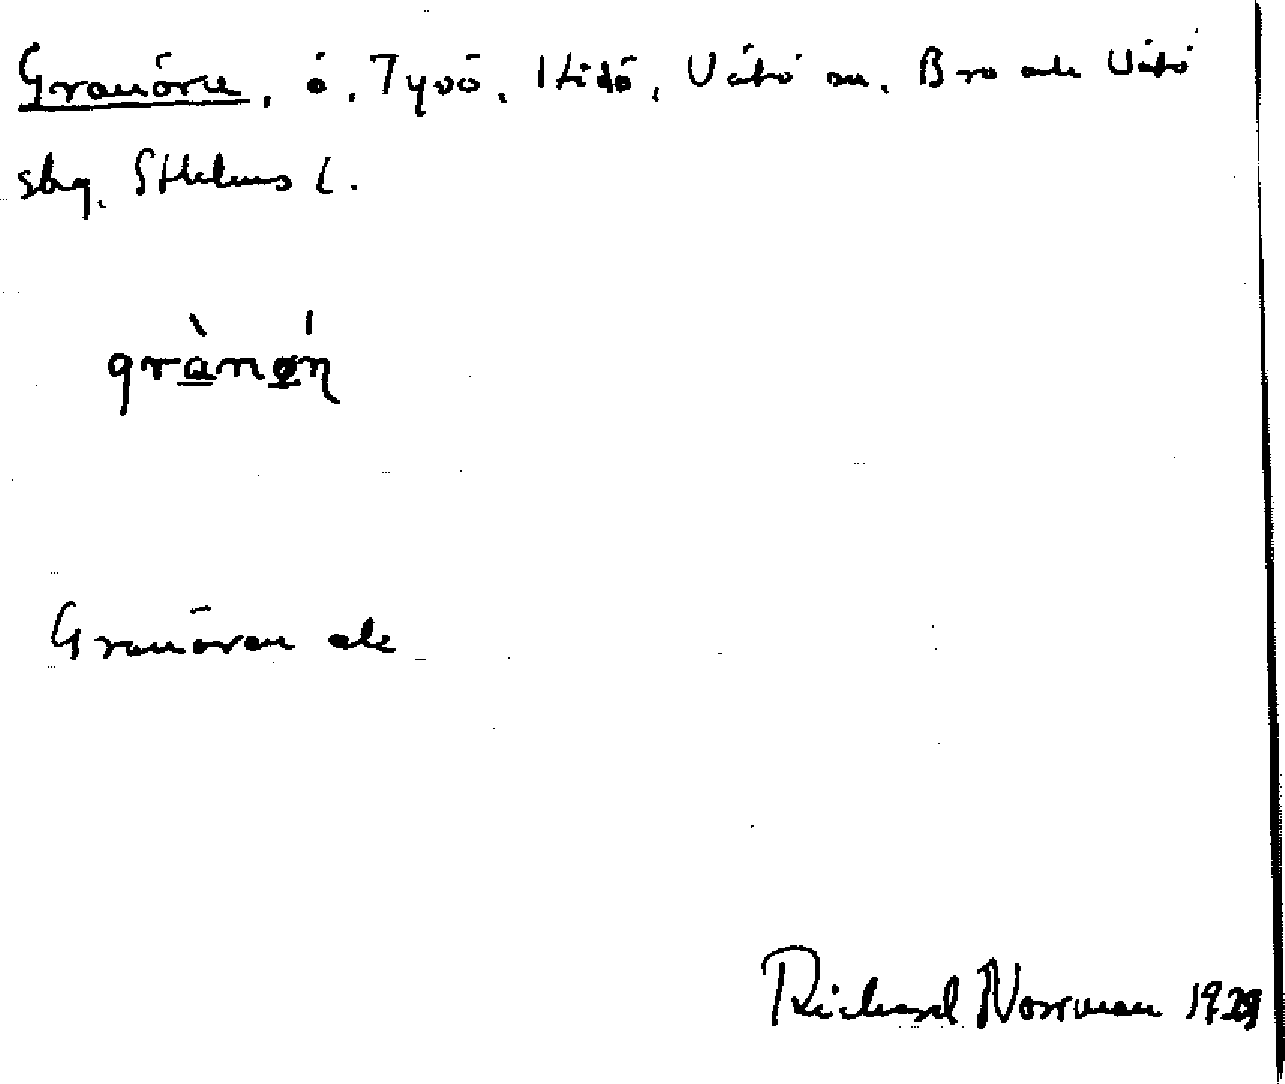 Granören, ö, Tyvö, Hidö, Vätö sn, Bro och Vätö
sbg, Sthlms l.
grànǿn
Granören etc
Richard Norrman 1929